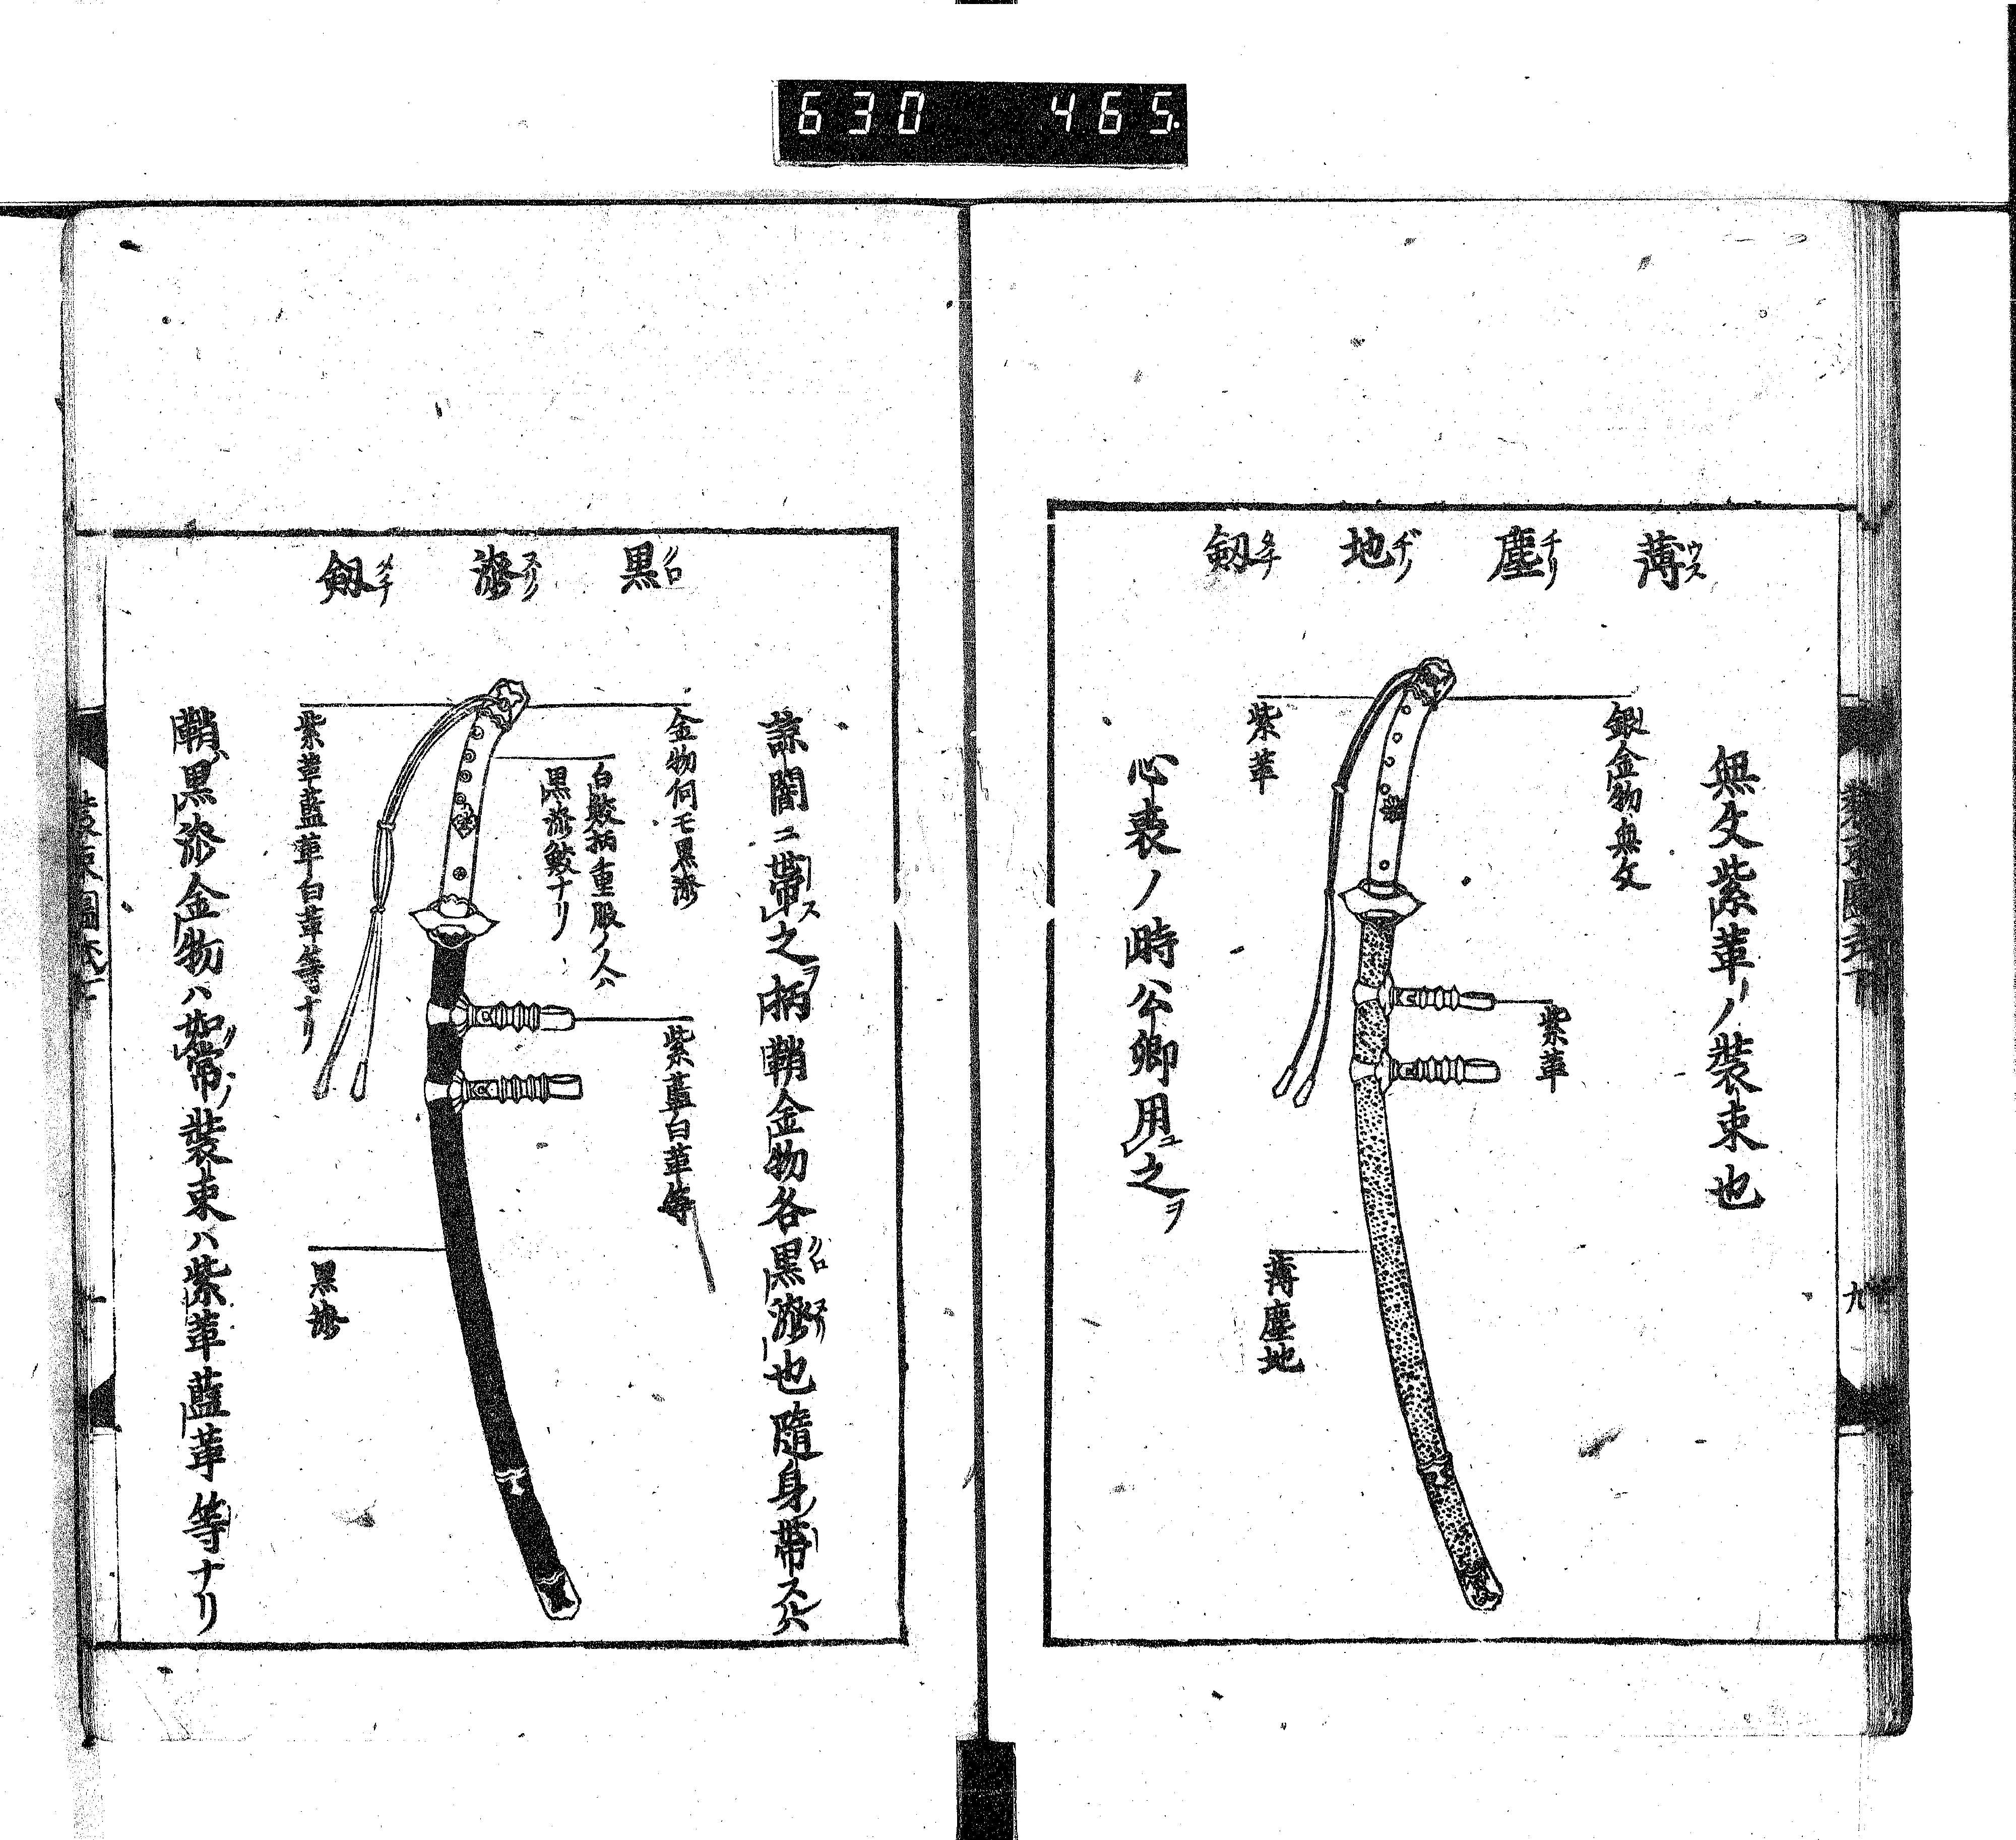 630 465.
薄塵地剱
ウス チリ ヂ タチ
無文紫革ノ装束也
銀金物無文
紫革
紫革
薄塵地
心喪ノ時公卿用ユ之ヲ
九
黒漆剱
クロ ヌリ タチ
諒闇ニ帯ス之ヲ柄鞘金物各黒漆也隨身帯スルハ
金物何モ黒漆
白鮫柄重服ノ人ハ
黒漆鮫ナリ
紫藍白革等
紫革藍革白革等ナリ
黒漆
鞘ハ黒漆金物ハ如常ノ装束ハ紫革藍革等ナリ